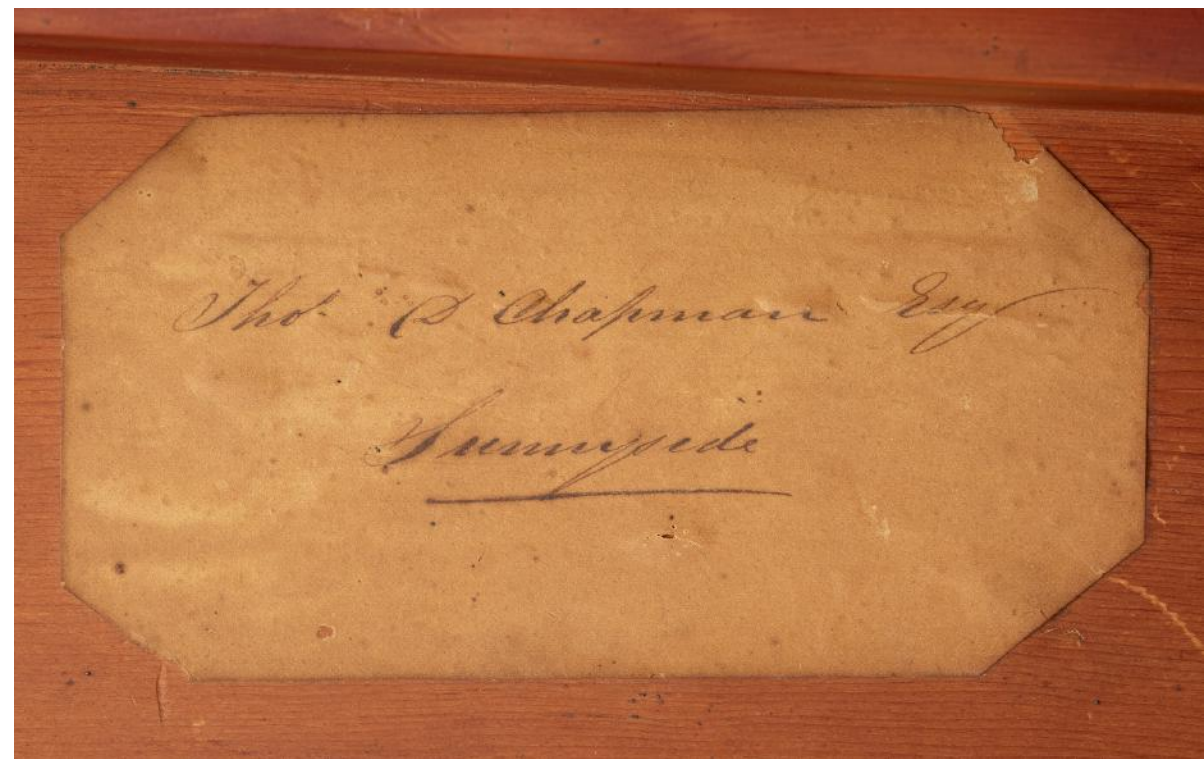 Thos. D Chapman Esq
Sunnyside